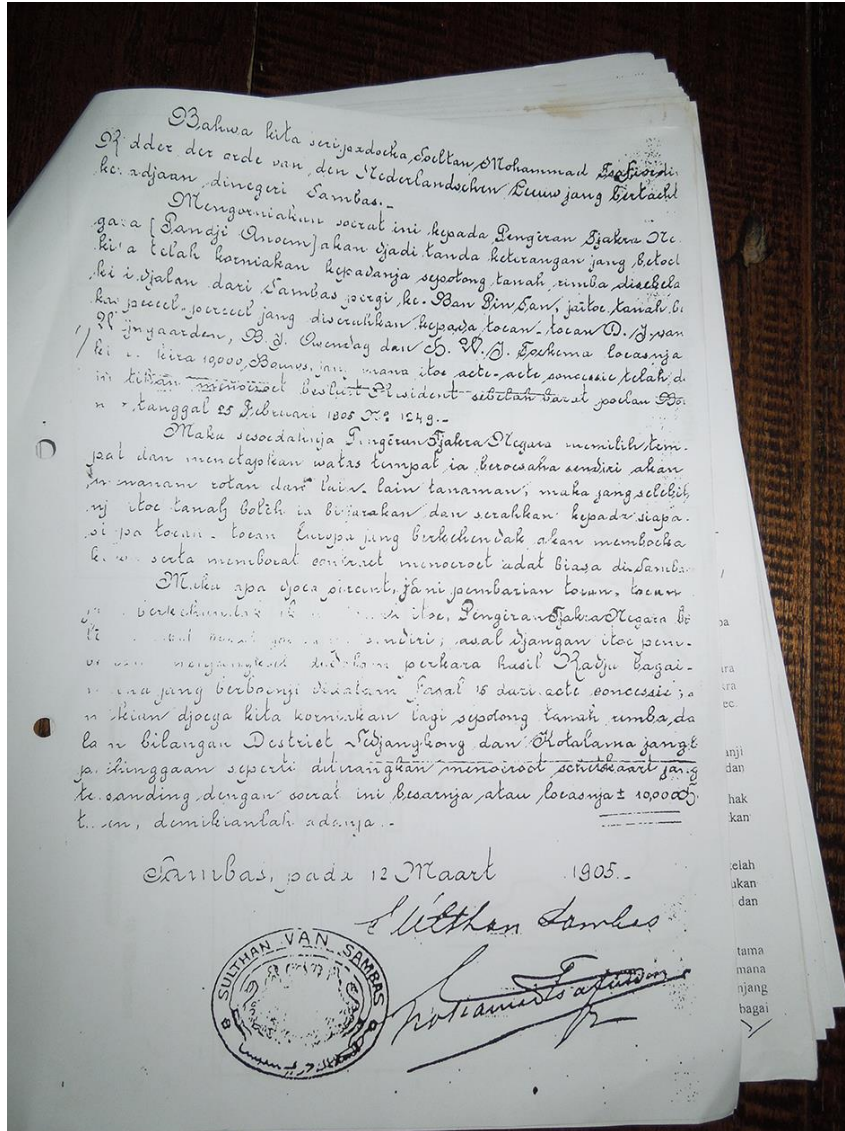 Bahwa kita seri padoeka Soeltan Mohammad
Ridder der orde van den Nederlandschen Leeuw jang bertacht
keradjaan dinegeri Sambas.-
Mengorniakan soerat ini kepada Pengeran Tjakra Ne-
gara [Pandji Anoem] akan djadi tanda keterangan jang betoel
kita telah korniakan kepadanja sepotong tanah rimba disebela
ki i djalan dari Sambas pergi ke Ban Pin San, jaitoe tanah be
kas perceel-perceel jang diserahkan kepada toean-toean D. J. van
Wijngaarden, B. J. Owendag dan H. W. J. Spekema loeasnja
kira 10,000, Bouws, jang mana itoe acte-acte concessie telah d
menoeroet besluit Resident sebelah barat poelau Bor
tanggal 25 Februari 1905 No 1249.-
Maka sesoedahnja Pengeran Tjakra Negara memilih tem-
pat dan menetapkan watas tempat ia beroesaha sendiri akan
menanam rotan dan lain-lain tanaman, maka jang selebih
nj itoe tanah boleh ia bitjarakan dan serahkan kepada siapa-
si pa toean-toean Europa jang berkehendak akan memboeka
serta memboeat contract menoeroet adat biasa di Samba
Maka apa djoea pembarian toean, toean
berkehendak itoe, Pengiran Tjakra Negara bo
sendiri; asal djangan itoe pem-
perkara hasil Radja bagai-
mana jang berboenji didalam fasal 15 dari acte concessie;
mikian djoega kita korniakan lagi sepotong tanah rimba, da
lam bilangan Destrict Sedjangkong dan Kotalama jang
perhinggaan seperti diterangkan menoeroet schetskaart jang
te sanding dengan soerat ini besarnja atau loeasnja ± 10,000
demikianlah adanja.-
Sambas, pada 12 Maart 1905.-
Sulthan Sambas
SULTHAN VAN SAMBAS
ba
ara
kra
ec.
anji
dan
hak
kan
telah
ukan
dan
tama
mana
njang
bagai